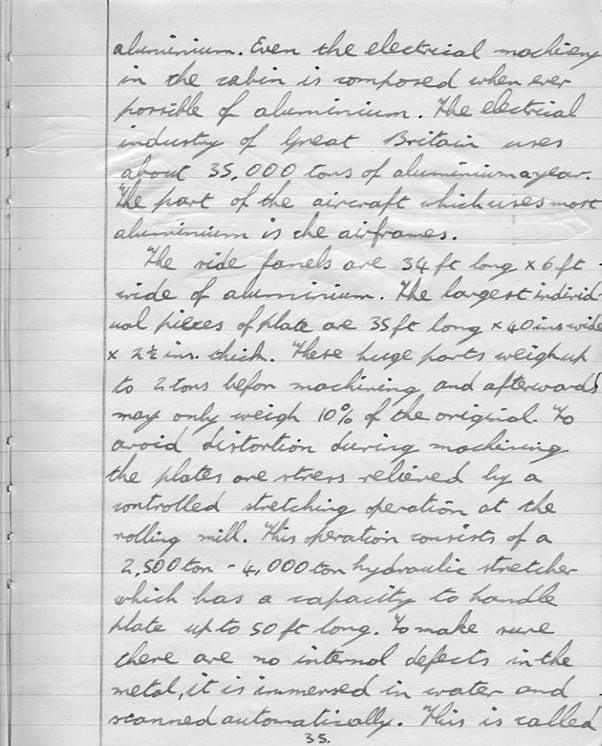 aluminium. Even the electrical machiery
in the cabin is composed when ever
possible of aluminium. The electrical
industry of Great Britain uses
about 35,000 tons of aluminium a year.
The part of the aircraft which uses most
aluminium is the airframes.
The side panels are 34 ft long x 6 ft
wide of aluminium. The largest individ-
ual pieces of plate are 35 ft long x 40 ins wide
x 2½ ins. thick. These huge parts weigh up
to 2 tons befor machining and afterwards
may only weigh 10% of the original. To
avoid distortion during machining
the plates are stress relieved by a
controlled stretching operation at the
rolling mill. This operation consists of a
2,500 ton - 4,000 ton hydraulic stretcher
which has a capacity to handle
plate up to 50 ft long. To make sure
there are no internal defects in the
metal, it is immersed in water and
scanned automatically. This is called
35.